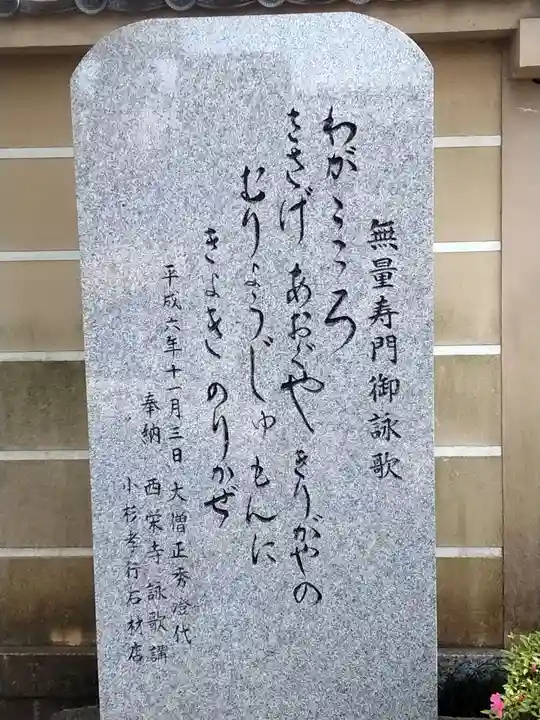 無量寿門御詠歌
わがこころ
きさげ あおぐや きりがやの
むりょうじゅ もんに
きよき のりかぜ
平成六年十一月三日 大僧正秀澄代
奉納 西栄寺詠歌講
小杉孝行石材店